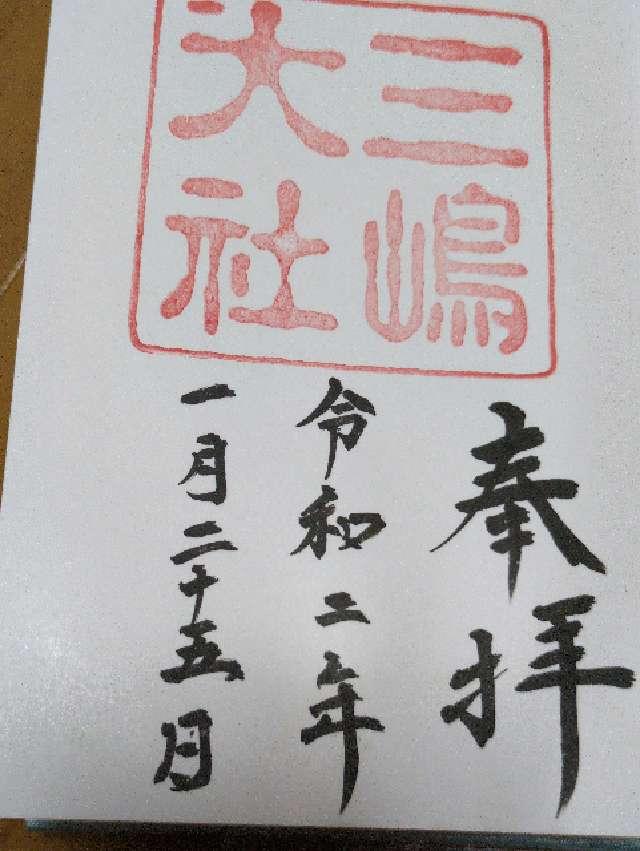 三嶋
大社
奉拝
令和二年
一月二十五月